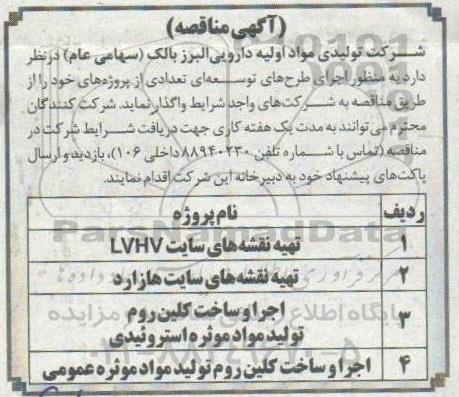 (آگهی مناقصه)
شرکت تولیدی مواد اولیه دارویی البرز بالک (سهامی عام) در نظر
دارد به منظور اجرای طرح‌های توسعه‌ای تعدادی از پروژه‌های خود را از
طریق مناقصه به شرکت‌های واجد شرایط واگذار نماید. شرکت کنندگان
محترم می‌توانند به مدت یک هفته کاری جهت دریافت شرایط شرکت در
مناقصه (تماس با شماره تلفن ۸۸۹۴۰۲۳۰ داخلی ۱۰۶)، بازدید و ارسال
پاکت‌های پیشنهاد خود به دبیرخانه این شرکت اقدام نمایند.
ردیف نام پروژه
۱ تهیه نقشه های سایت LVHV
۲ تهیه نقشه های سایت هازارد
۳ اجرا و ساخت کلین روم
تولید مواد موثره استروئیدی
۴ اجرا و ساخت کلین روم تولید مواد موثره عمومی
ParsNamadData